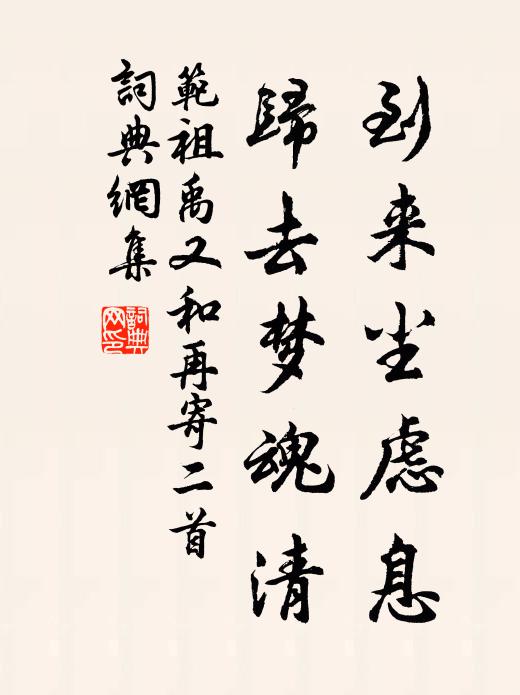 到来尘虑息
歸去梦魂清
範祖禹又和再寄二首
詞典網集
詞典网印